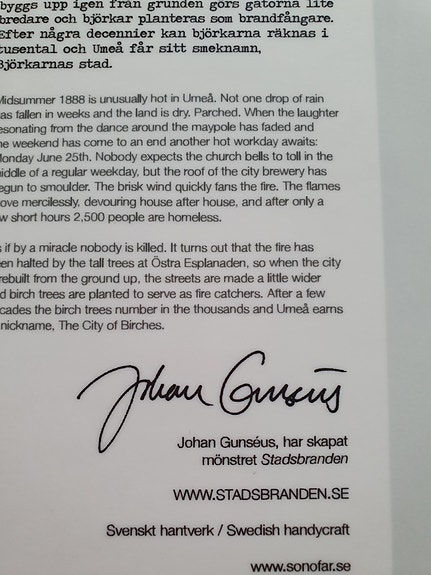 byggs upp igen från grunden görs gatorna lite
bredare och björkar planteras som brandfångare.
Efter några decennier kan björkarna räknas i
tusental och Umeå får sitt smeknamn,
Björkarnas stad.
Midsummer 1888 is unusually hot in Umeå. Not one drop of rain
as fallen in weeks and the land is dry. Parched. When the laughter
esonating from the dance around the maypole has faded and
he weekend has come to an end another hot workday awaits:
Monday June 25th. Nobody expects the church bells to toll in the
iddle of a regular weekday, but the roof of the city brewery has
egun to smoulder. The brisk wind quickly fans the fire. The flames
ove mercilessly, devouring house after house, and after only a
w short hours 2,500 people are homeless.
s if by a miracle nobody is killed. It turns out that the fire has
en halted by the tall trees at Östra Esplanaden, so when the city
rebuilt from the ground up, the streets are made a little wider
d birch trees are planted to serve as fire catchers. After a few
cades the birch trees number in the thousands and Umeå earns
nickname, The City of Birches.
Johan Gunséus
Johan Gunséus, har skapat
mönstret Stadsbranden
WWW.STADSBRANDEN.SE
Svenskt hantverk / Swedish handycraft
www.sonofar.se